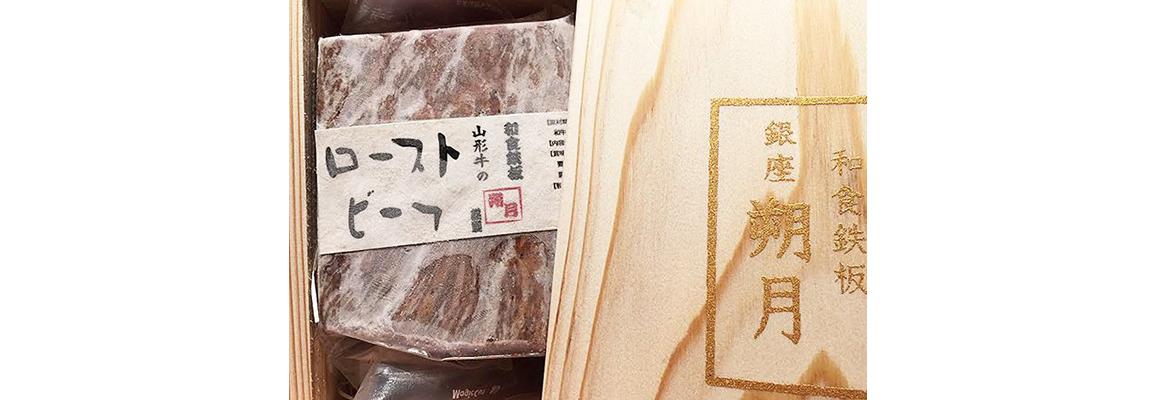 和食鉄板
銀座
朔月
和食鉄板
山形牛の
ロースト
ビーフ
朔月